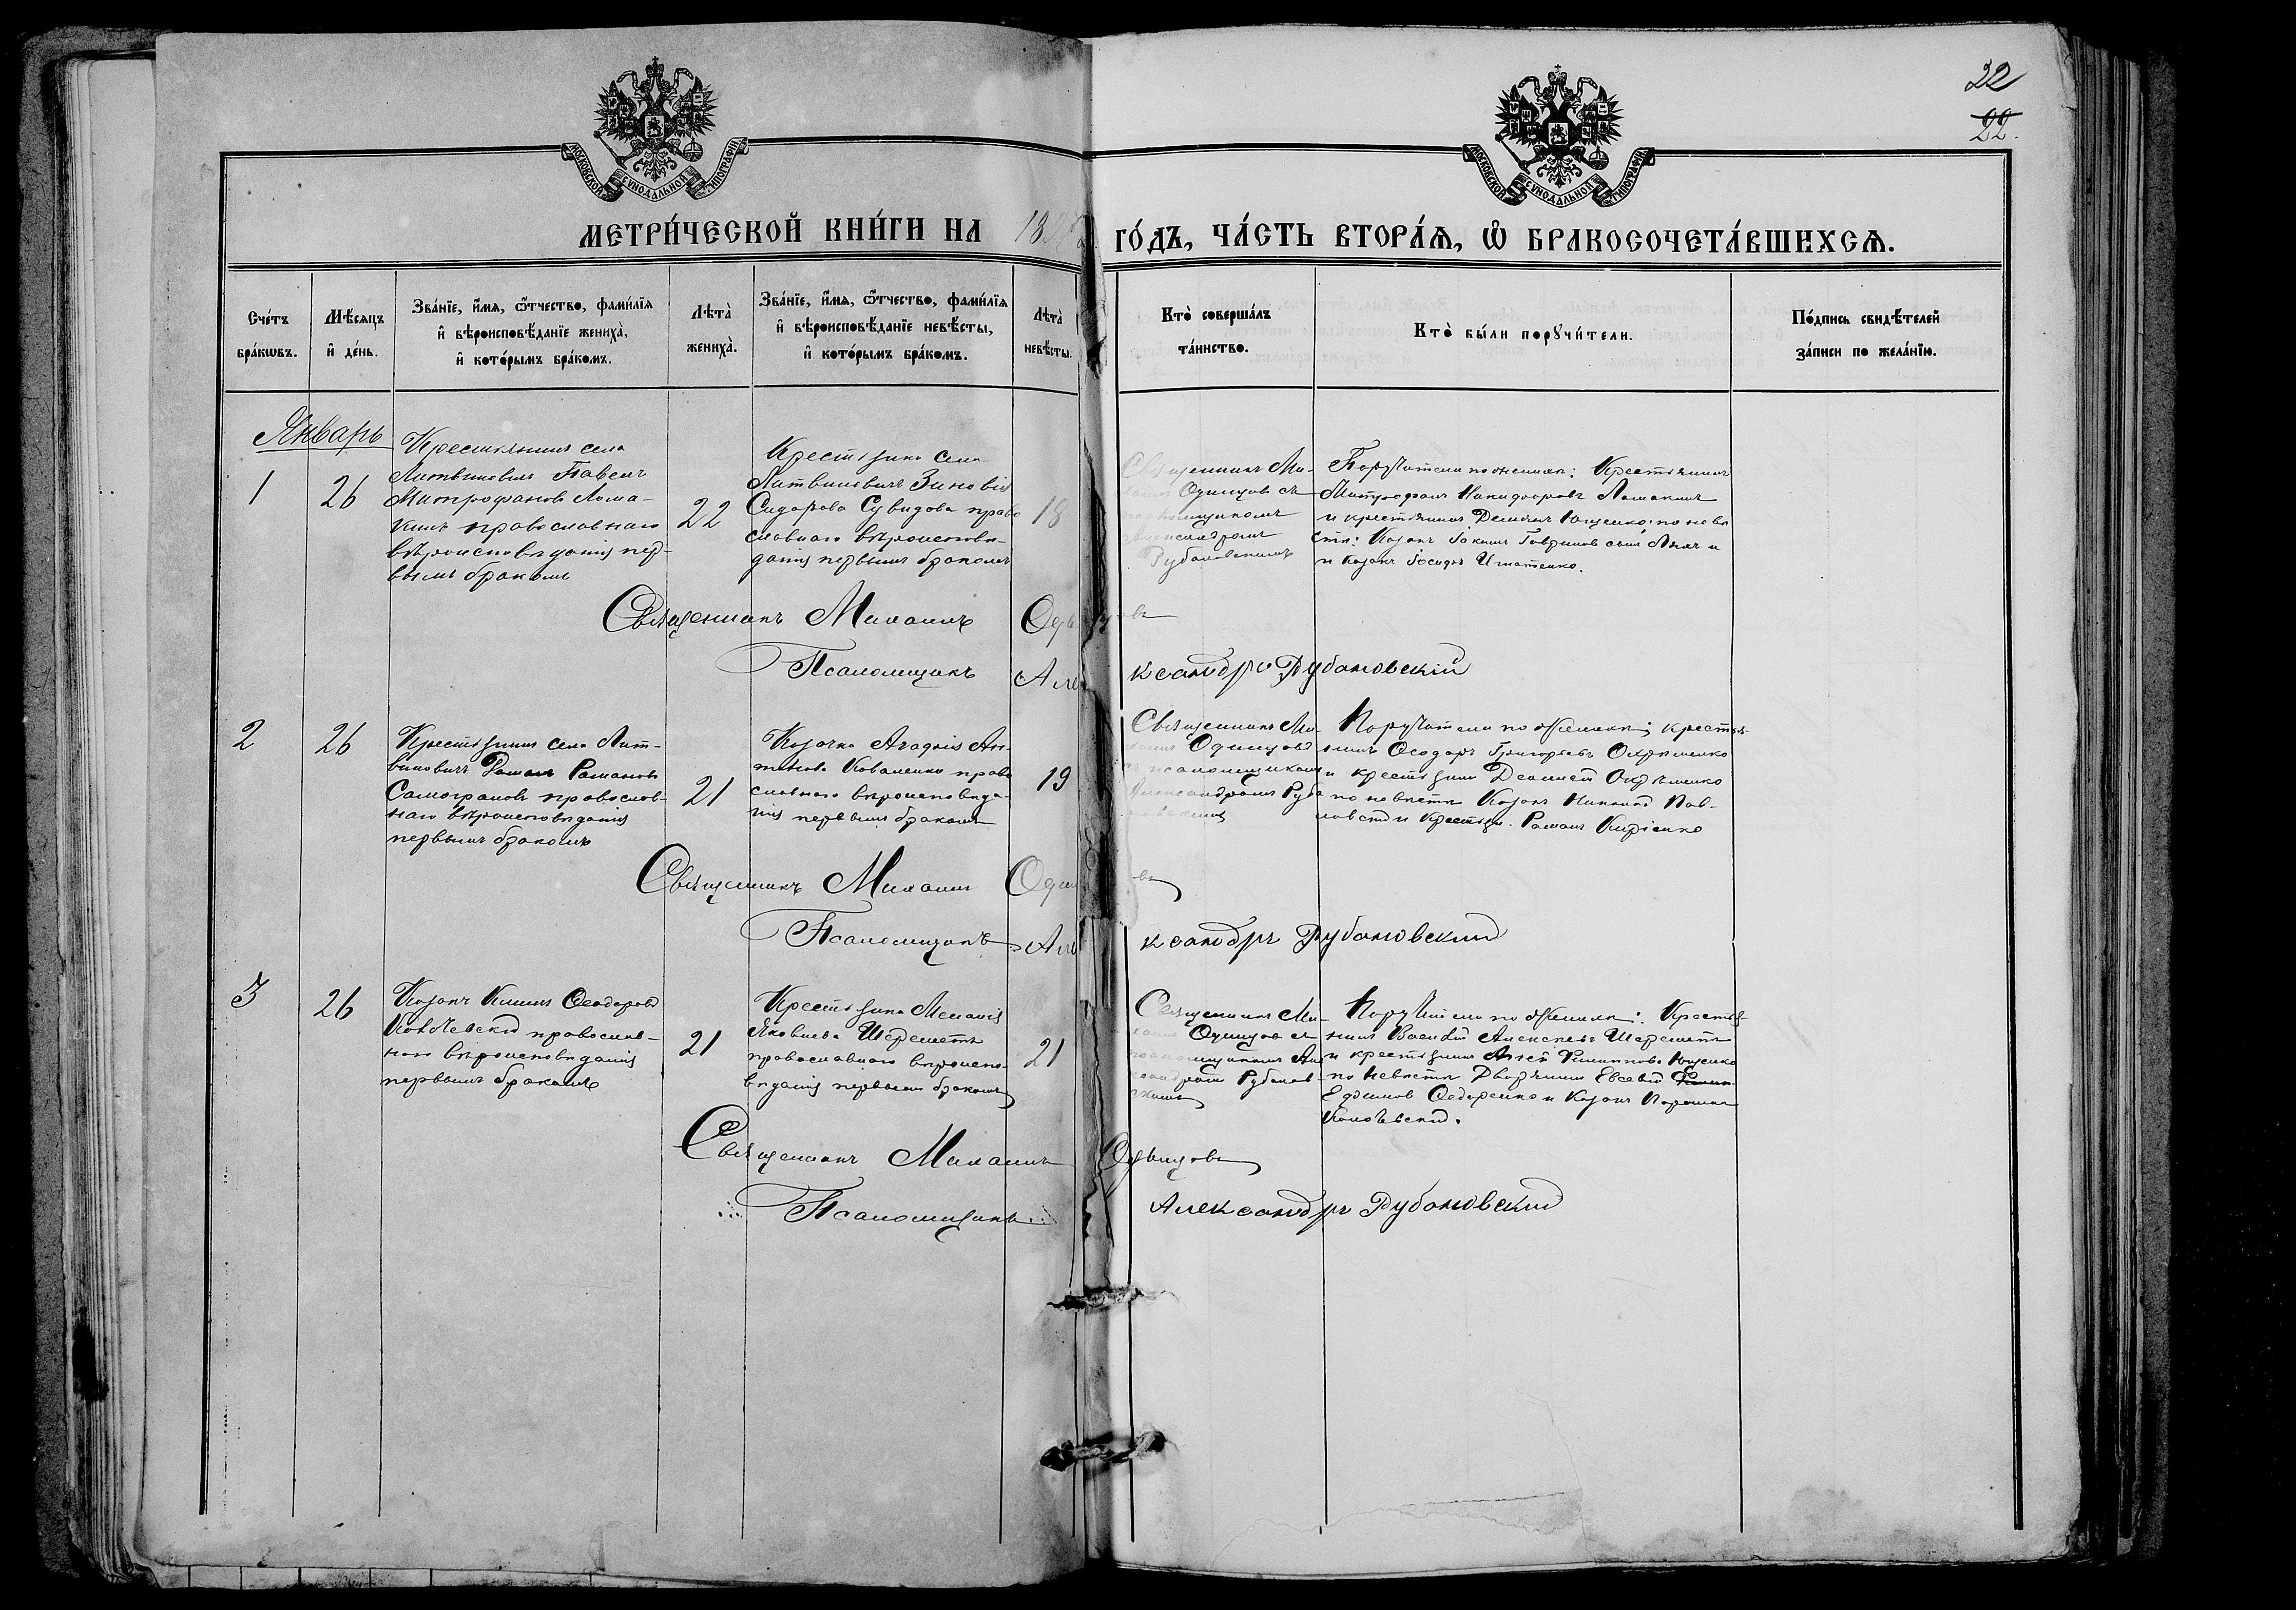 22
22.
МОСКОВСКОЙ СѴНОДАЛЬНОЙ ТИПОГРАФІИ
МОСКОВСКОЙ СѴНОДАЛЬНОЙ ТИПОГРАФІИ
МЕТРИ́ЧЕСКОЙ КНИ́ГИ НА ГО́ДЪ, ЧА́СТЬ ВТОРА́Я, Ѡ҆ БРАКОСОЧЕТА́ВШИХСЯ.
Сче́тъ
бра́кѡвъ.
Мѣ́сяцъ
и҆ де́нь.
Зва́нїе, и҆́мя, ѻ҆́тчество, фами́лїя
и҆ вѣроисповѣ́данїе жениха̀,
и҆ кото́рымъ бра́комъ.
Лѣ́та̀
жениха̀.
Зва́нїе, и҆́мя, ѻ҆́тчество, фами́лїя
и҆ вѣроисповѣ́данїе невѣ́сты,
и҆ кото́рымъ бра́комъ.
Лѣ́та̀
невѣ́сты.
Кто̀ соверша́лъ
та́инство.
Кто̀ бы́ли порꙋчи́тели.
По́дпись свидѣ́телей
за́писи по жела́нїю.
Январь
1
26
Крестьянинъ села
Литвиновичъ Павелъ
Митрофановъ Лома-
кинъ православнаго
вѣроисповѣданія пер-
вымъ бракомъ
22
Крестьянка села
Литвиновичъ Зиновія
Сидорова Сувидова право
славнаго вѣроисповѣ-
данія первымъ бракомъ
18
Священникъ Ми-
Одинцовъ съ
псаломщикомъ
Александромъ
Рубановскимъ
Поручители по женихѣ: Крестьянинъ
Митрофанъ Никифоровъ Ломакинъ
и крестьянинъ Демьянъ Ющенко: по невѣ
стѣ: Козакъ Іакимъ Гавриловъ
и Козакъ Іосифъ Игнатенко.
Священникъ Михаилъ Одинцовъ
Псаломщикъ Александръ Рубановскій
2
26
Крестьянинъ села Лит-
виновичъ Романъ Романовъ
православ-
наго вѣроисповѣданія
первымъ бракомъ
21
Козачка Агафія Ан-
тонова Коваленко право
славнаго вѣроисповѣда-
нія первымъ бракомъ
19
Священникъ Ми-
хаилъ Одинцовъ
съ псаломщикомъ
Александромъ Руба
новскимъ
Поручители по женихѣ: крестья-
нинъ Ѳеодоръ Григорьевъ
и крестьянинъ
по невѣстѣ Козакъ Николай Пав-
ловскій и Крестьян. Романъ Киріенко
Священникъ Михаилъ Одинцовъ
Псаломщикъ Александръ Рубановскій
3
26
Козакъ Климъ Ѳеодоровъ
православ-
наго вѣроисповѣданія
первымъ бракомъ
21
Крестьянка Меланія
Яковлева Шереметъ
православнаго вѣроиспо-
вѣданія первымъ бракомъ
21
Священникъ Ми-
хаилъ Одинцовъ съ
псаломщикомъ Але
ксандромъ Рубанов-
скимъ
Поручители по женихѣ: Крестья-
нинъ Василій Алексѣевъ Шереметъ
и крестьянинъ Филипповъ Ющенко
по невѣстѣ Дворянинъ Евсевій
Ефимовъ Ѳедоренко и Козакъ

Священникъ Михаилъ Одинцовъ
Псаломщикъ Александръ Рубановскій